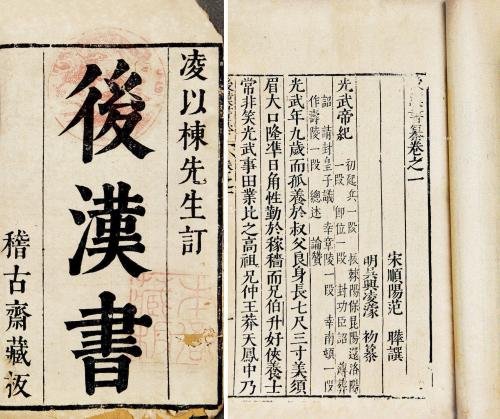 凌以棟先生訂
後漢書
稽古齋藏板
後漢書纂卷之一
宋順陽范 曄譔
明吳興凌濛 初纂
光武帝紀 初起兵一段 拔棘陽保昆陽還洛陽
一段 即位一段 封功臣詔 薄葬
詔 請封皇子議 幸章陵一段 幸南頓一段
作壽陵一段 總述 論贊
光武年九歲而孤養於叔父良身長七尺三寸美須
眉大口隆準日角性勤於稼穡而兄伯升好俠養士
常非笑光武事田業比之高祖兄仲王莽天鳳中乃